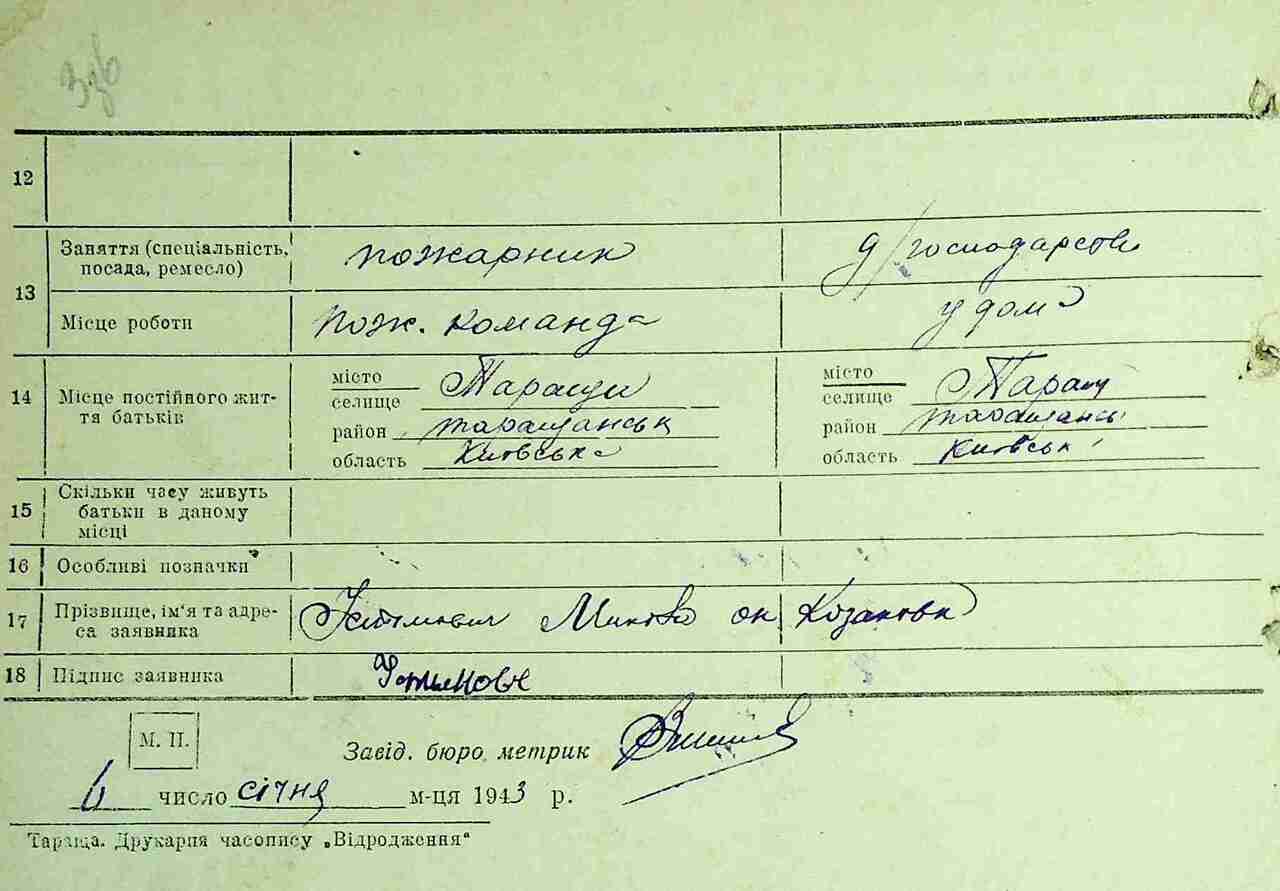 12
13 Заняття (спеціальність, посада, ремесло) пожарник д/господарств
Місце роботи Пож. команда у дома
14 Місце постійного життя батьків
місто селище Таращи місто селище Таращ
район таращанськ район таращансь
область Київська область Київськ
15 Скільки часу живуть батьки в даному місці
16 Особливі позначки
17 Прізвище, ім'я та адреса заявника
18 Підпис заявника
М. П.
Завід. бюро метрик
6 число січня м-ця 1943 р.
Тараща. Друкарня часопису „Відродження“